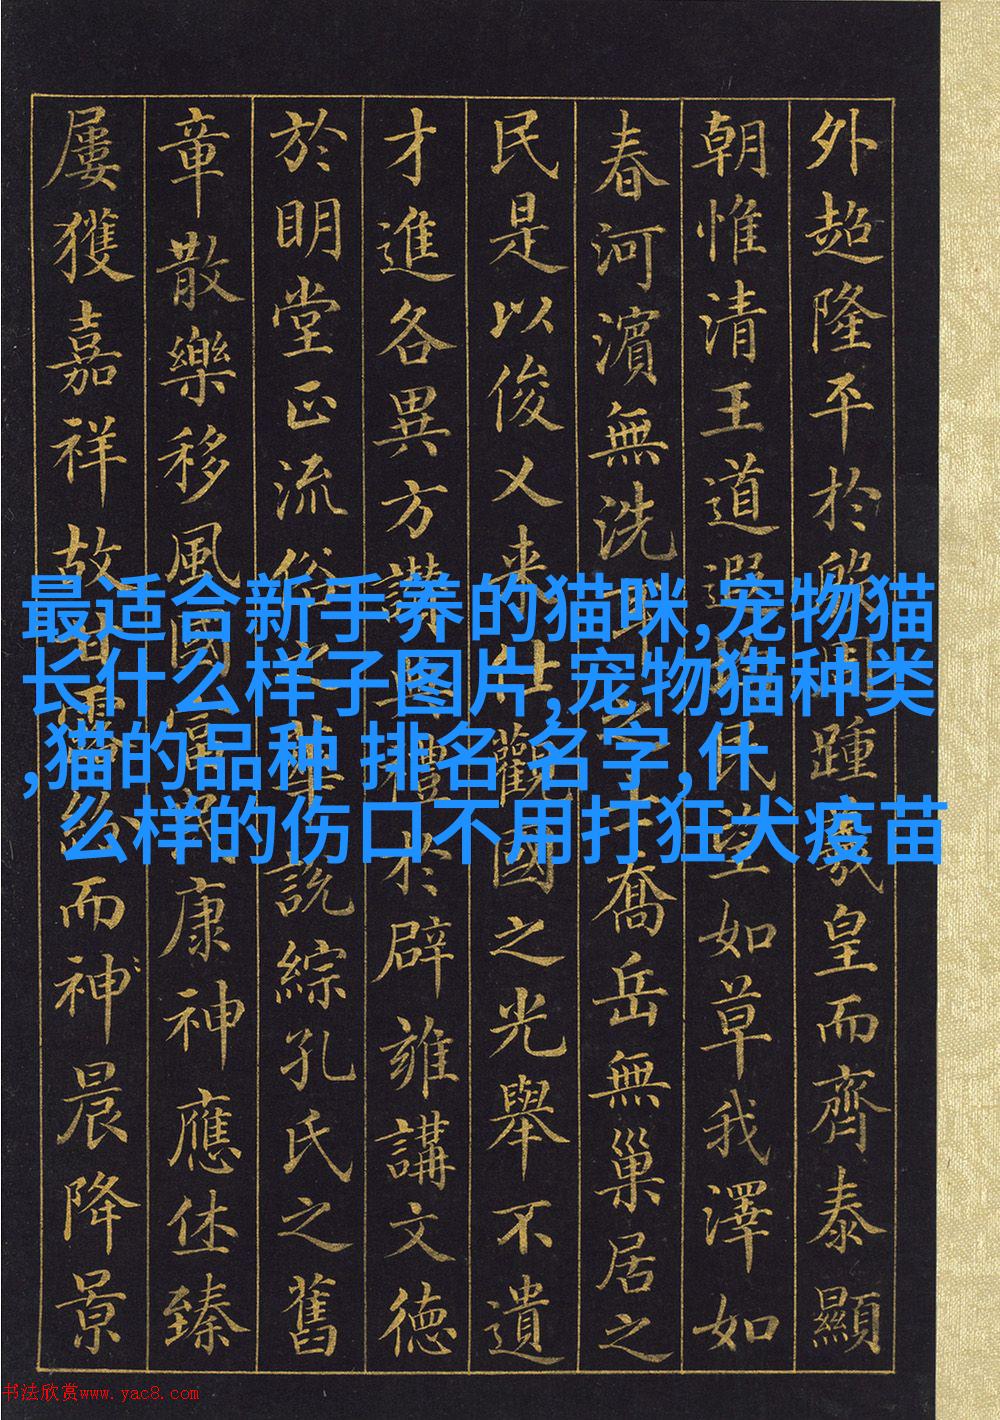 外超隆平於殷周踵羲皇而齊泰顯
朝惟清王道遐均民望如草我澤如
春河濱無洗耳之士喬岳無巢居之
民是以俊乂来仕觀國之光舉不遺
才進各異方讃典禮於辟雍講文德
於明堂正流俗之華說綜孔氏之舊
章散樂移風國富民康神應休臻
屢獲嘉祥故甘露紛而神晨降景
最适合新手养的猫咪,宠物猫
长什么样子图片,宠物猫种类
,猫的品种 排名 名字,什
么样的伤口不用打狂犬疫苗
书法欣赏www.yac8.com